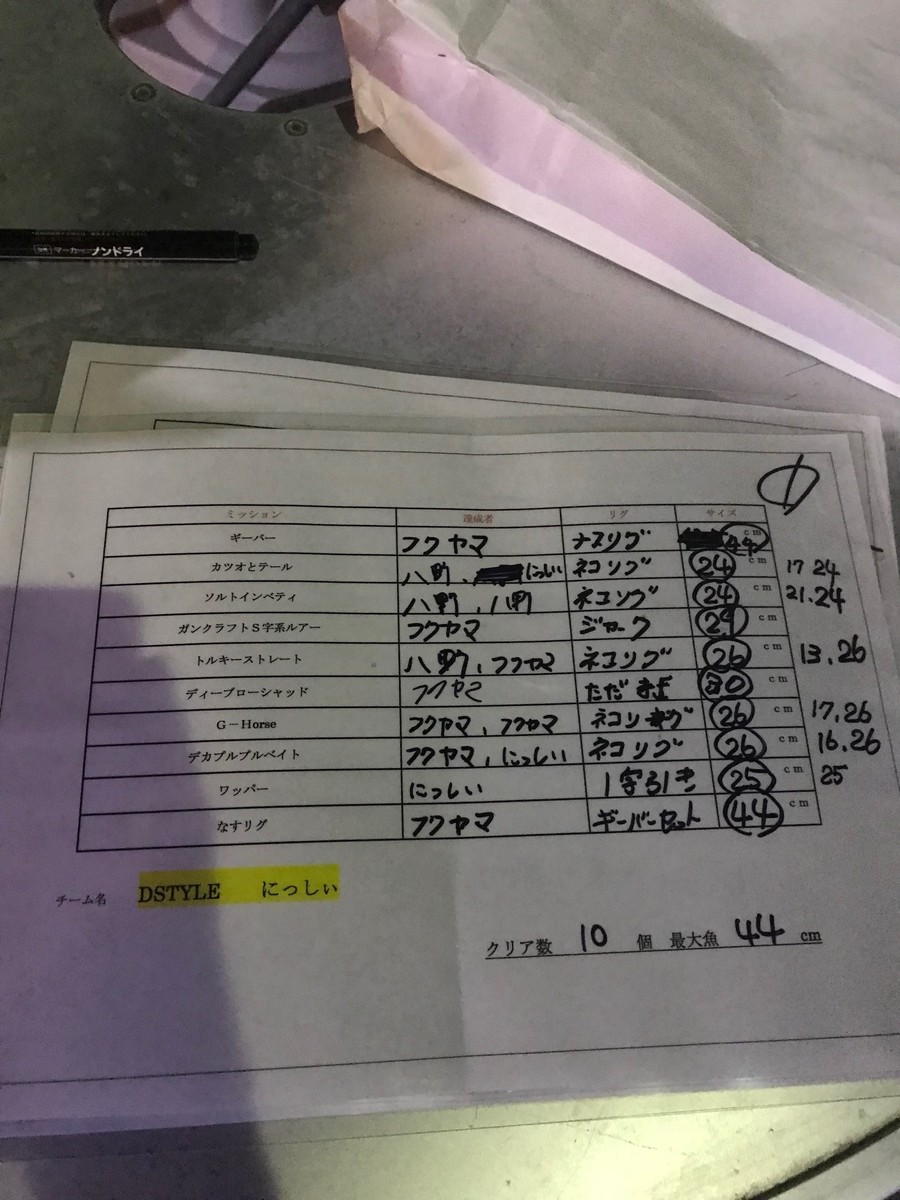 マーカー ノンドライ
①
ミッション 達成者 リグ サイズ
ギーバー フクヤマ ナスリグ 44 cm
カツオとテール 八町、にっしい ネコリグ 24 cm 17 24
ソルトインベティ ネコリグ 24 cm 21.24
ガンクラフトS字系ルアー フクヤマ ジャーク 29 cm
トルキーストレート フクヤマ ネコリグ 26 cm 13.26
ディープローシャッド フクヤマ ただまき 30 cm
G－Horse フクヤマ、フクヤマ ネコリグ 26 cm 17,26
デカブルブルベイト フクヤマ、にっしい ネコリグ 26 cm 16.26
ワッパー にっしい 1字引き 25 cm 25
なすリグ フクヤマ ギーバーセット 44 cm
チーム名 DSTYLE にっしぃ
クリア数 10 個 最大魚 44 cm